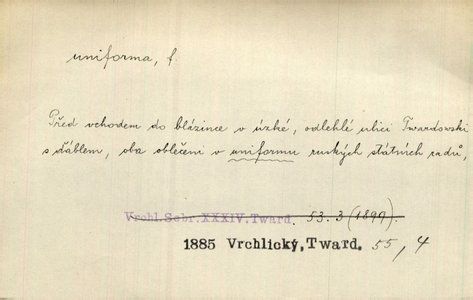 uniforma, f.
Před vchodem do blázince v úzké, odlehlé ulici Twardowski
s ďáblem, oba oblečeni v uniformu ruských státních radů,
Vrchl. Sebr. XXXIV. Tward. 53. 3 (1899)
1885 Vrchlický, Tward. 55, 4